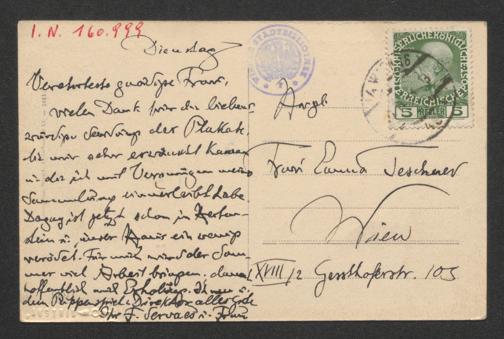 I.N. 160.999
Dienstag
Verehrteste gnädige Frau,
vielen Dank für die liebens-
würdige Sendung der Plakate,
die mir sehr erwünscht kamen
u die ich mit Vergnügen meiner
Sammlung einverleibt habe.
ist jetzt schon in
u. unser Haus ein wenig
verödet. Für mich wird der Som-
mer viel Arbeit bringen, dann
hoffentlich auch Erholung. Ihnen u.
dem Puppenspiel-Direktor alles Gute
Ihr F. Servaes u. Frau
WIENER STADTBIBLIOTHEK
KAISERLICHE KÖNIGLICHE
ÖSTERREICHISCHE
5 HELLER 5
WIEN
Frau Emma Teschner
Wien
XVIII/2 Gersthoferstr. 105